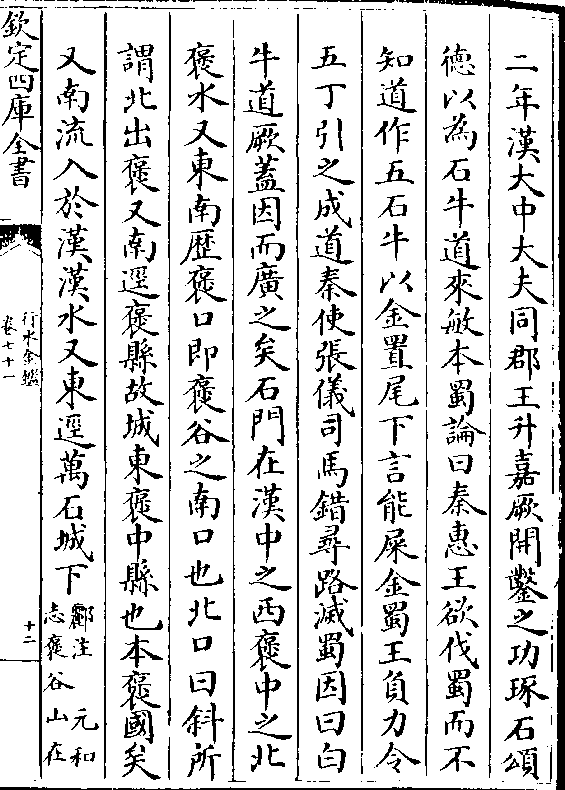 二年漢大中大夫同郡王升嘉厥開鑿之功琢石頌
德以為石牛道來敏本蜀論曰秦惠王欲伐蜀而不
知道作五石牛以金置尾下言能屎金蜀王負力令
五丁引之成道秦使張儀司馬錯尋路滅蜀因曰白
牛道厥蓋因而廣之矣石門在漢中之西褒中之北
褒水又東南歷褒口即褒谷之南口也北口曰斜所
謂北出褒又南逕褒縣故城東褒中縣也本褒國矣
又南流入於漢漢水又東逕萬石城下
酈注 元和
志褒谷山在
欽定四庫全書
行水金鑑
卷七十一
十二